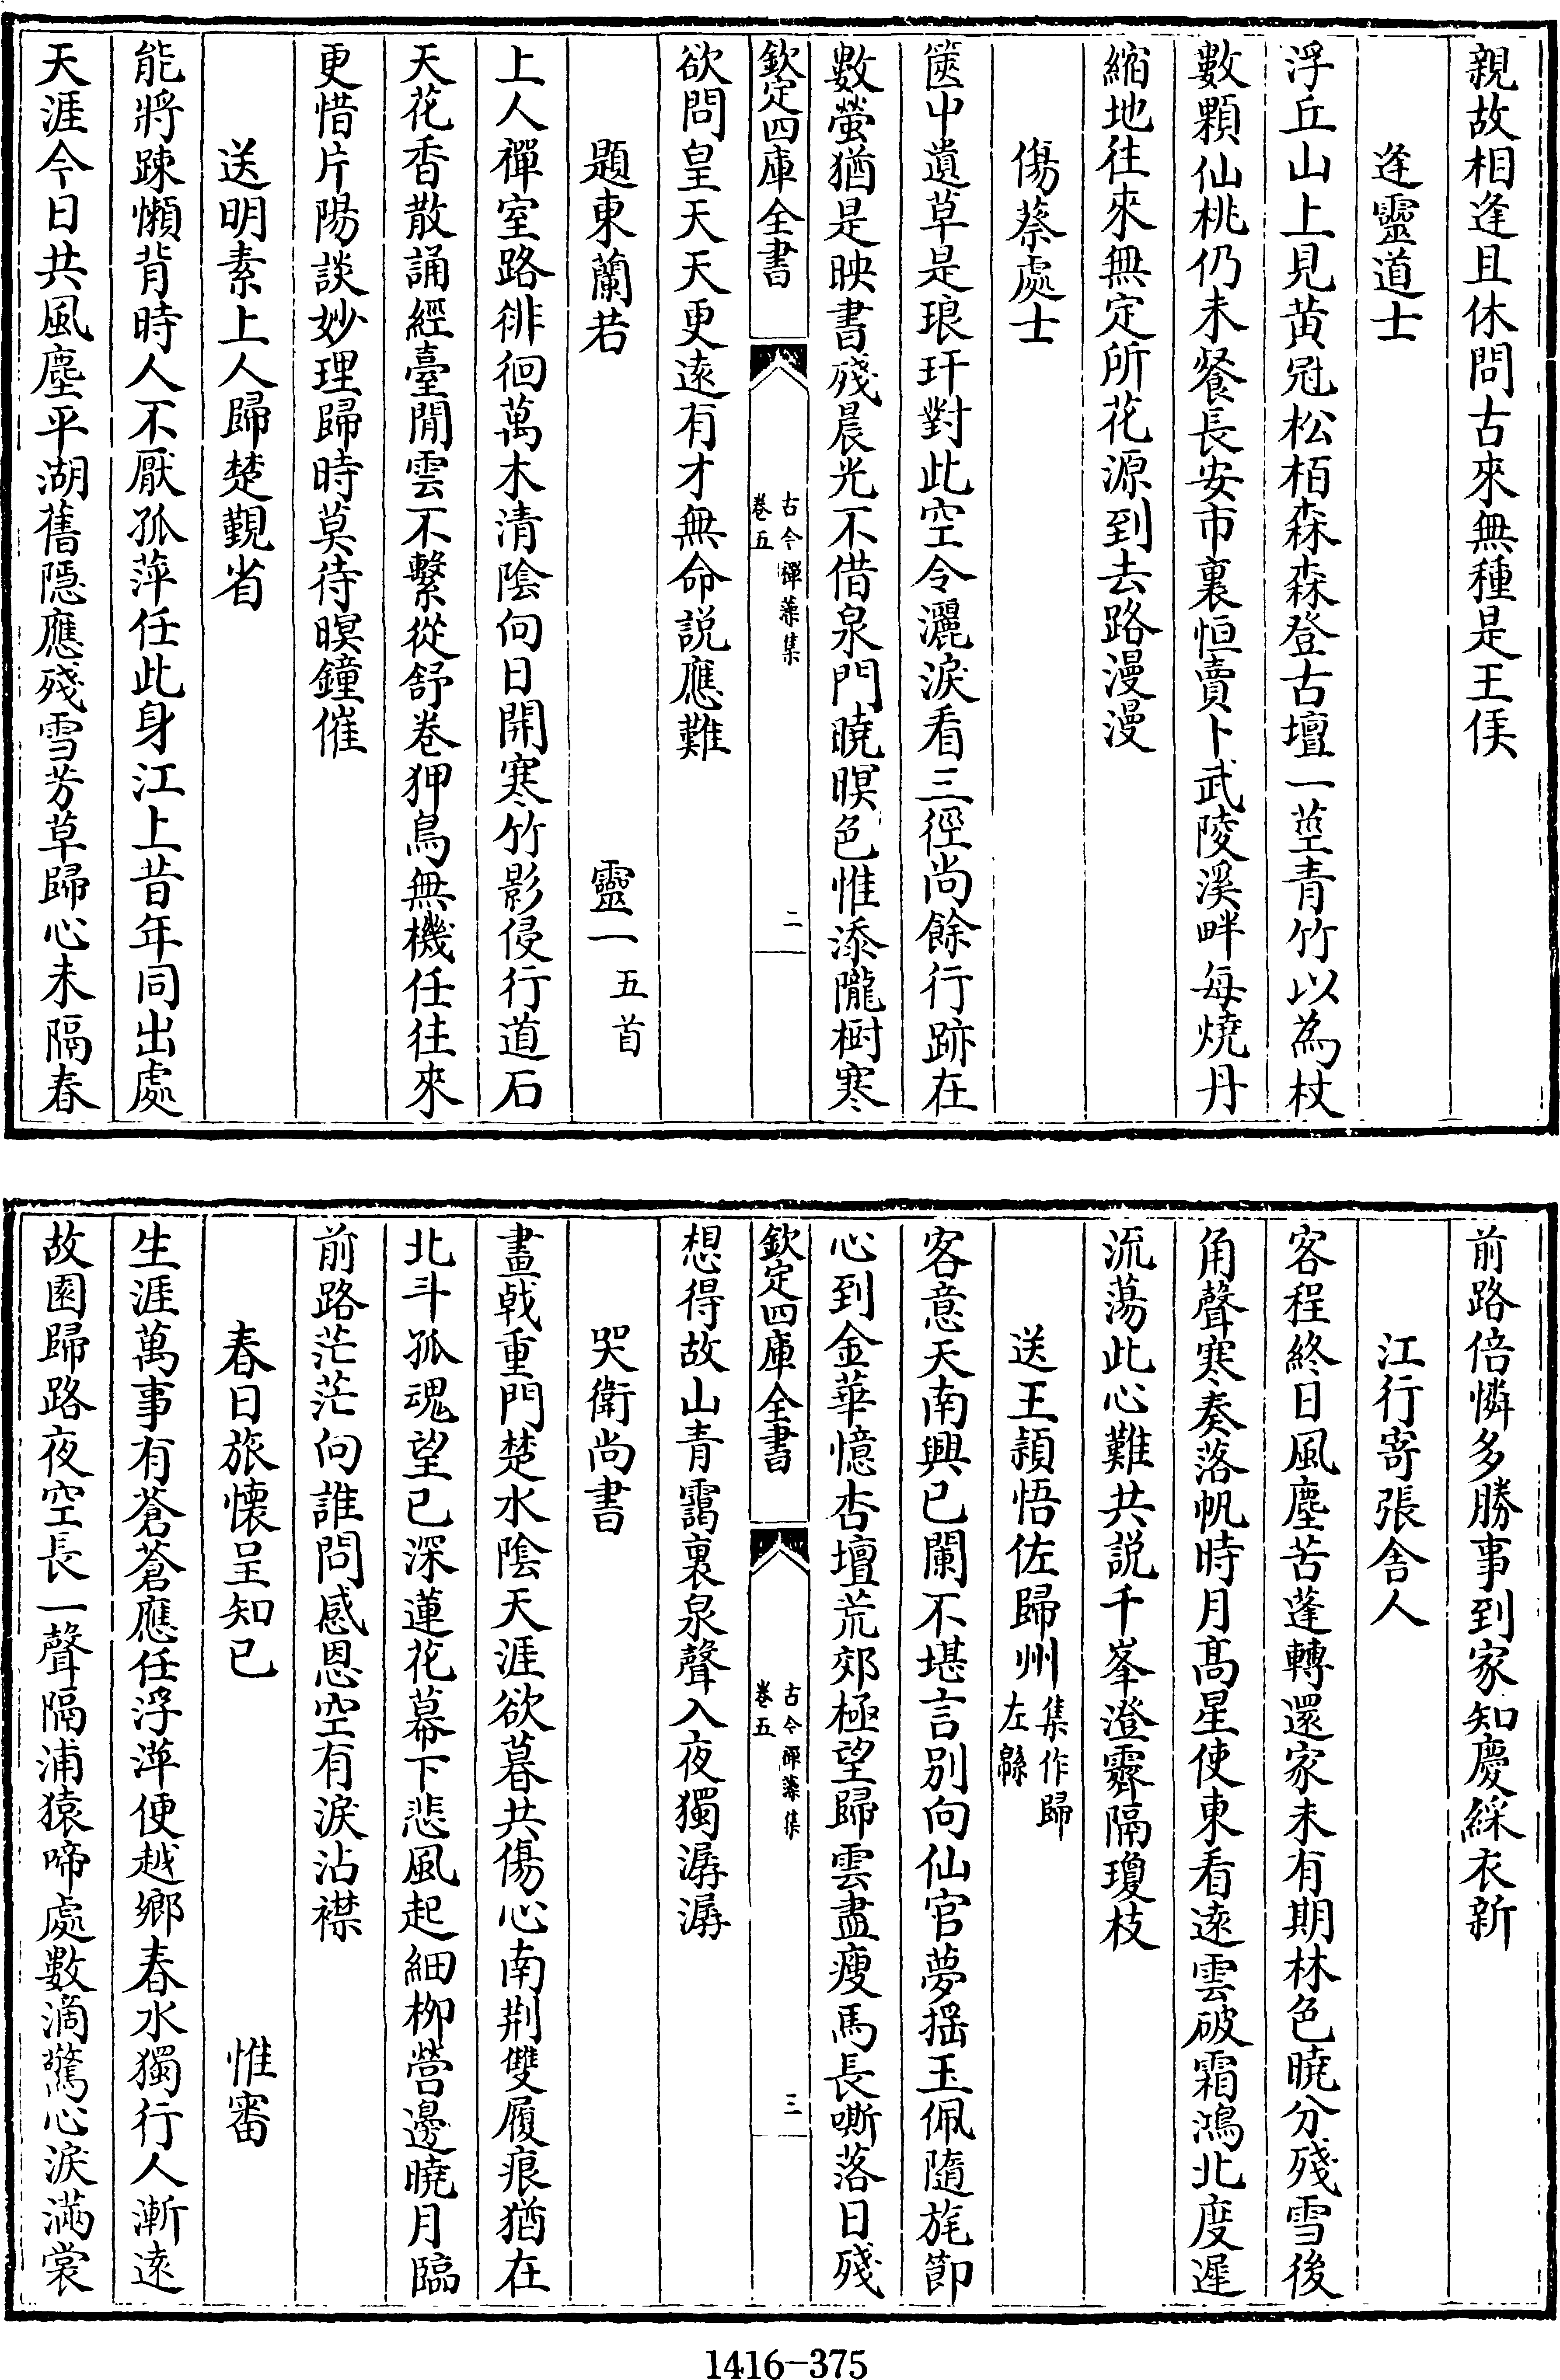 親故相逢且休問古來無種是王侯
逢靈道士
浮丘山上見黃冠松栢森森登古壇一莖青竹以為杖
數顆仙桃仍未餐長安市裏恒賣卜武陵溪畔每燒丹
縮地往來無定所花源到去路漫漫
傷蔡處士
篋中遺草是琅玕對此空令灑淚看三徑尚餘行跡在
數螢猶是映書殘晨光不借泉門曉暝色惟添隴樹寒
欽定四庫全書
古今禪藻集
卷五
二
欲問皇天天更遠有才無命説應難
題東蘭若
靈一
五首
上人禪室路徘徊萬木清陰向日開寒竹影侵行道石
天花香散誦經臺閒雲不繫從舒卷狎鳥無機任往來
更惜片陽談妙理歸時莫待暝鐘催
送明素上人歸楚覲省
能將踈懶背時人不厭孤萍任此身江上昔年同出處
天涯今日共風塵平湖舊隠應殘雪芳草歸心未隔春
前路倍憐多勝事到家知慶綵衣新
江行寄張舎人
客程終日風塵苦蓬轉還家未有期林色曉分殘雪後
角聲寒奏落帆時月髙星使東看遠雲破霜鴻北度遲
流蕩此心難共説千峯澄霽隔瓊枝
送王頴悟佐歸州
集作歸
左緜
客意天南興已闌不堪言别向仙官夢摇玉佩隨旄節
心到金華憶杏壇荒郊極望歸雲盡瘦馬長嘶落日殘
欽定四庫全書
古今禪藻集
卷五
三
想得故山青靄裏泉聲入夜獨潺潺
哭衛尚書
畫戟重門楚水陰天涯欲暮共傷心南荆雙履痕猶在
北斗孤魂望已深蓮花幕下悲風起細柳營邊曉月臨
前路茫茫向誰問感恩空有淚沾襟
春日旅懷呈知已
惟審
生涯萬事有蒼蒼應任浮萍便越鄉春水獨行人漸遠
故園歸路夜空長一聲隔浦猿啼處數滴驚心淚滿裳
1416-375